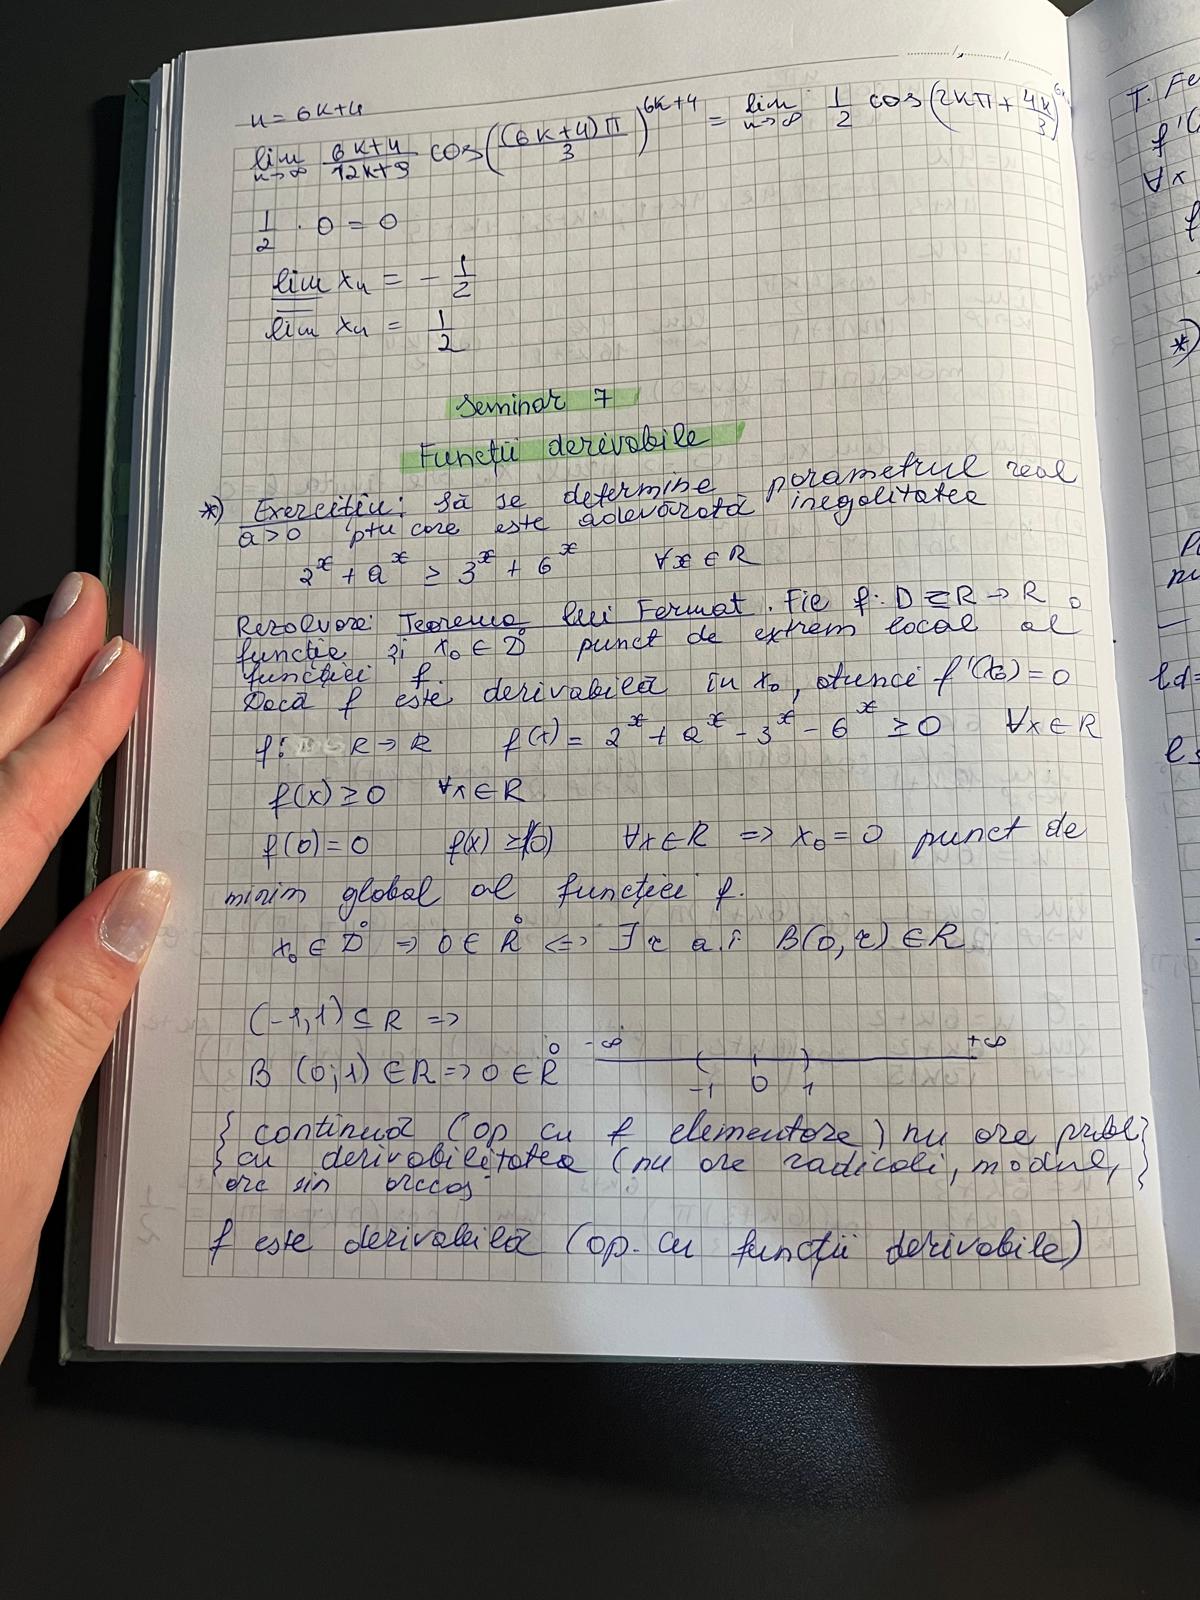 n = 6k+4
lim n→∞ 6k+4/12k+9 cos((6k+4)π/3)^6k+4 = lim n→∞ 1/2 cos(2kπ + 4π/3)
1/2 · 0 = 0
lim xn = - 1/2
lim xn = 1/2
Seminar 7
Funcții derivabile
*) Exercițiu: Să se determine parametrul real
a>0 ptu care este adevărată inegalitatea
2^x + a^x ≥ 3^x + 6^x ∀x ∈ R
Rezolvare: Teorema lui Fermat. Fie f: D ⊆ R → R o
funcție și x₀ ∈ D̊ punct de extrem local al
funcției f.
Dacă f este derivabilă în x₀, atunci f'(x₀) = 0
f: R → R f(x) = 2^x + a^x - 3^x - 6^x ≥ 0 ∀x ∈ R
f(x) ≥ 0 ∀x ∈ R
f(0) = 0 f(x) ≥ f(0) ∀x ∈ R => x₀ = 0 punct de
minim global al funcției f.
x₀ ∈ D̊ => 0 ∈ R̊ <=> ∃ r a.î B(0, r) ∈ R
(-1, 1) ⊆ R =>
-∞ +∞
B (0, 1) ∈ R => 0 ∈ R̊
-1 0 1
{ continuă (op cu f elementare) nu are probl }
{ cu derivabilitatea (nu are radicali, modul, }
arc sin arccos
f este derivabilă (op. cu funcții derivabile)
T. Fe
∀x
f
*)